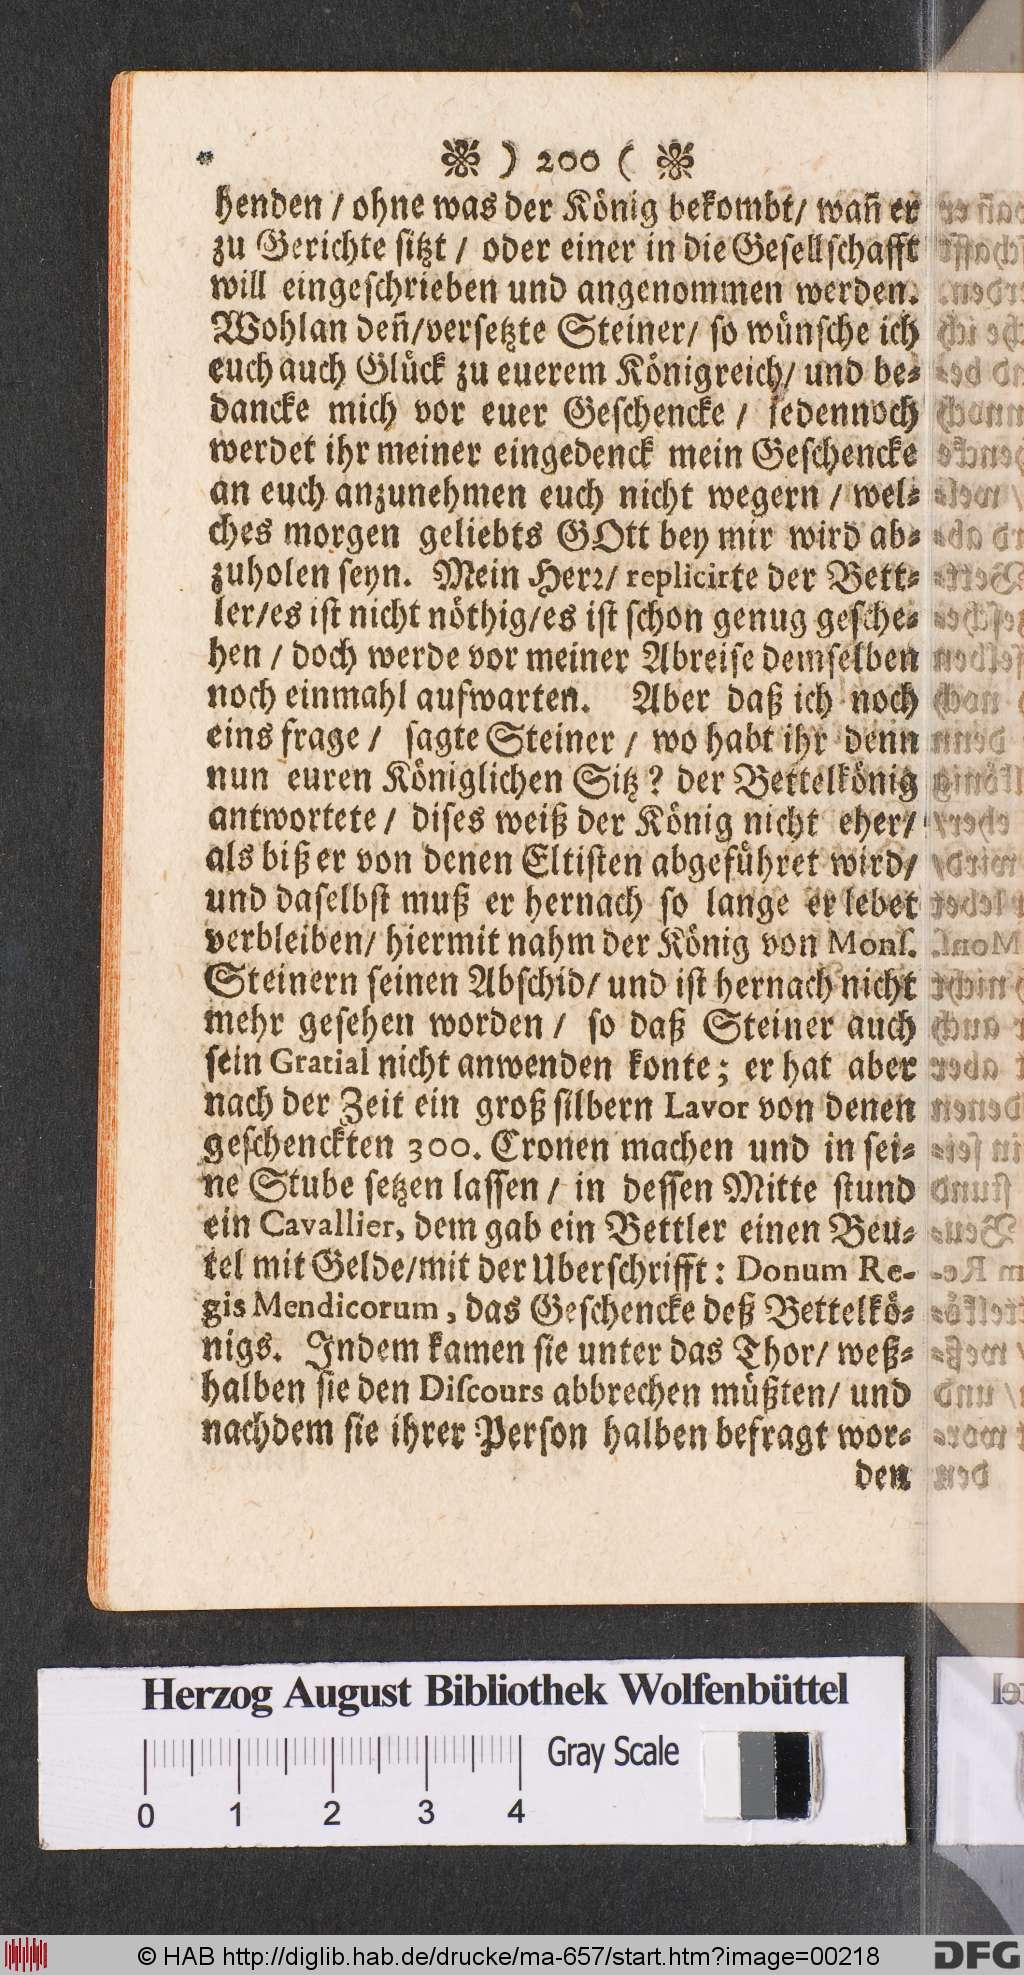 ) 200 (
henden / ohne was der König bekombt/ wañ er
zu Gerichte sitzt / oder einer in die Gesellschafft
will eingeschrieben und angenommen werden.
Wohlan deñ/versetzte Steiner/ so wünsche ich
euch auch Glück zu euerem Königreich/ und be-
dancke mich vor euer Geschencke / jedennoch
werdet ihr meiner eingedenck mein Geschencke
an euch anzunehmen euch nicht wegern / wel-
ches morgen geliebts GOtt bey mir wird ab-
zuholen seyn. Mein Herr/ replicirte der Bett-
ler/es ist nicht nöthig/es ist schon genug gesche-
hen / doch werde vor meiner Abreise demselben
noch einmahl aufwarten. Aber daß ich noch
eins frage / sagte Steiner / wo habt ihr denn
nun euren Königlichen Sitz? der Bettelkönig
antwortete / dises weiß der König nicht eher/
als biß er von denen Eltisten abgeführet wird/
und daselbst muß er hernach so lange er lebet
verbleiben/ hiermit nahm der König von Monſ.
Steinern seinen Abschid/ und ist hernach nicht
mehr gesehen worden / so daß Steiner auch
sein Gratial nicht anwenden konte; er hat aber
nach der Zeit ein groß silbern Lavor von denen
geschenckten 300. Cronen machen und in sei-
ne Stube setzen lassen / in dessen Mitte stund
ein Cavallier, dem gab ein Bettler einen Beu-
tel mit Gelde/mit der Uberschrifft: Donum Re-
gis Mendicorum, das Geschencke deß Bettelkö-
nigs. Indem kamen sie unter das Thor/ weß-
halben sie den Diſcours abbrechen müßten/ und
nachdem sie ihrer Person halben befragt wor-
den
Herzog August Bibliothek Wolfenbüttel
Gray Scale
0 1 2 3 4
© HAB http://diglib.hab.de/drucke/ma-657/start.htm?image=00218
DFG